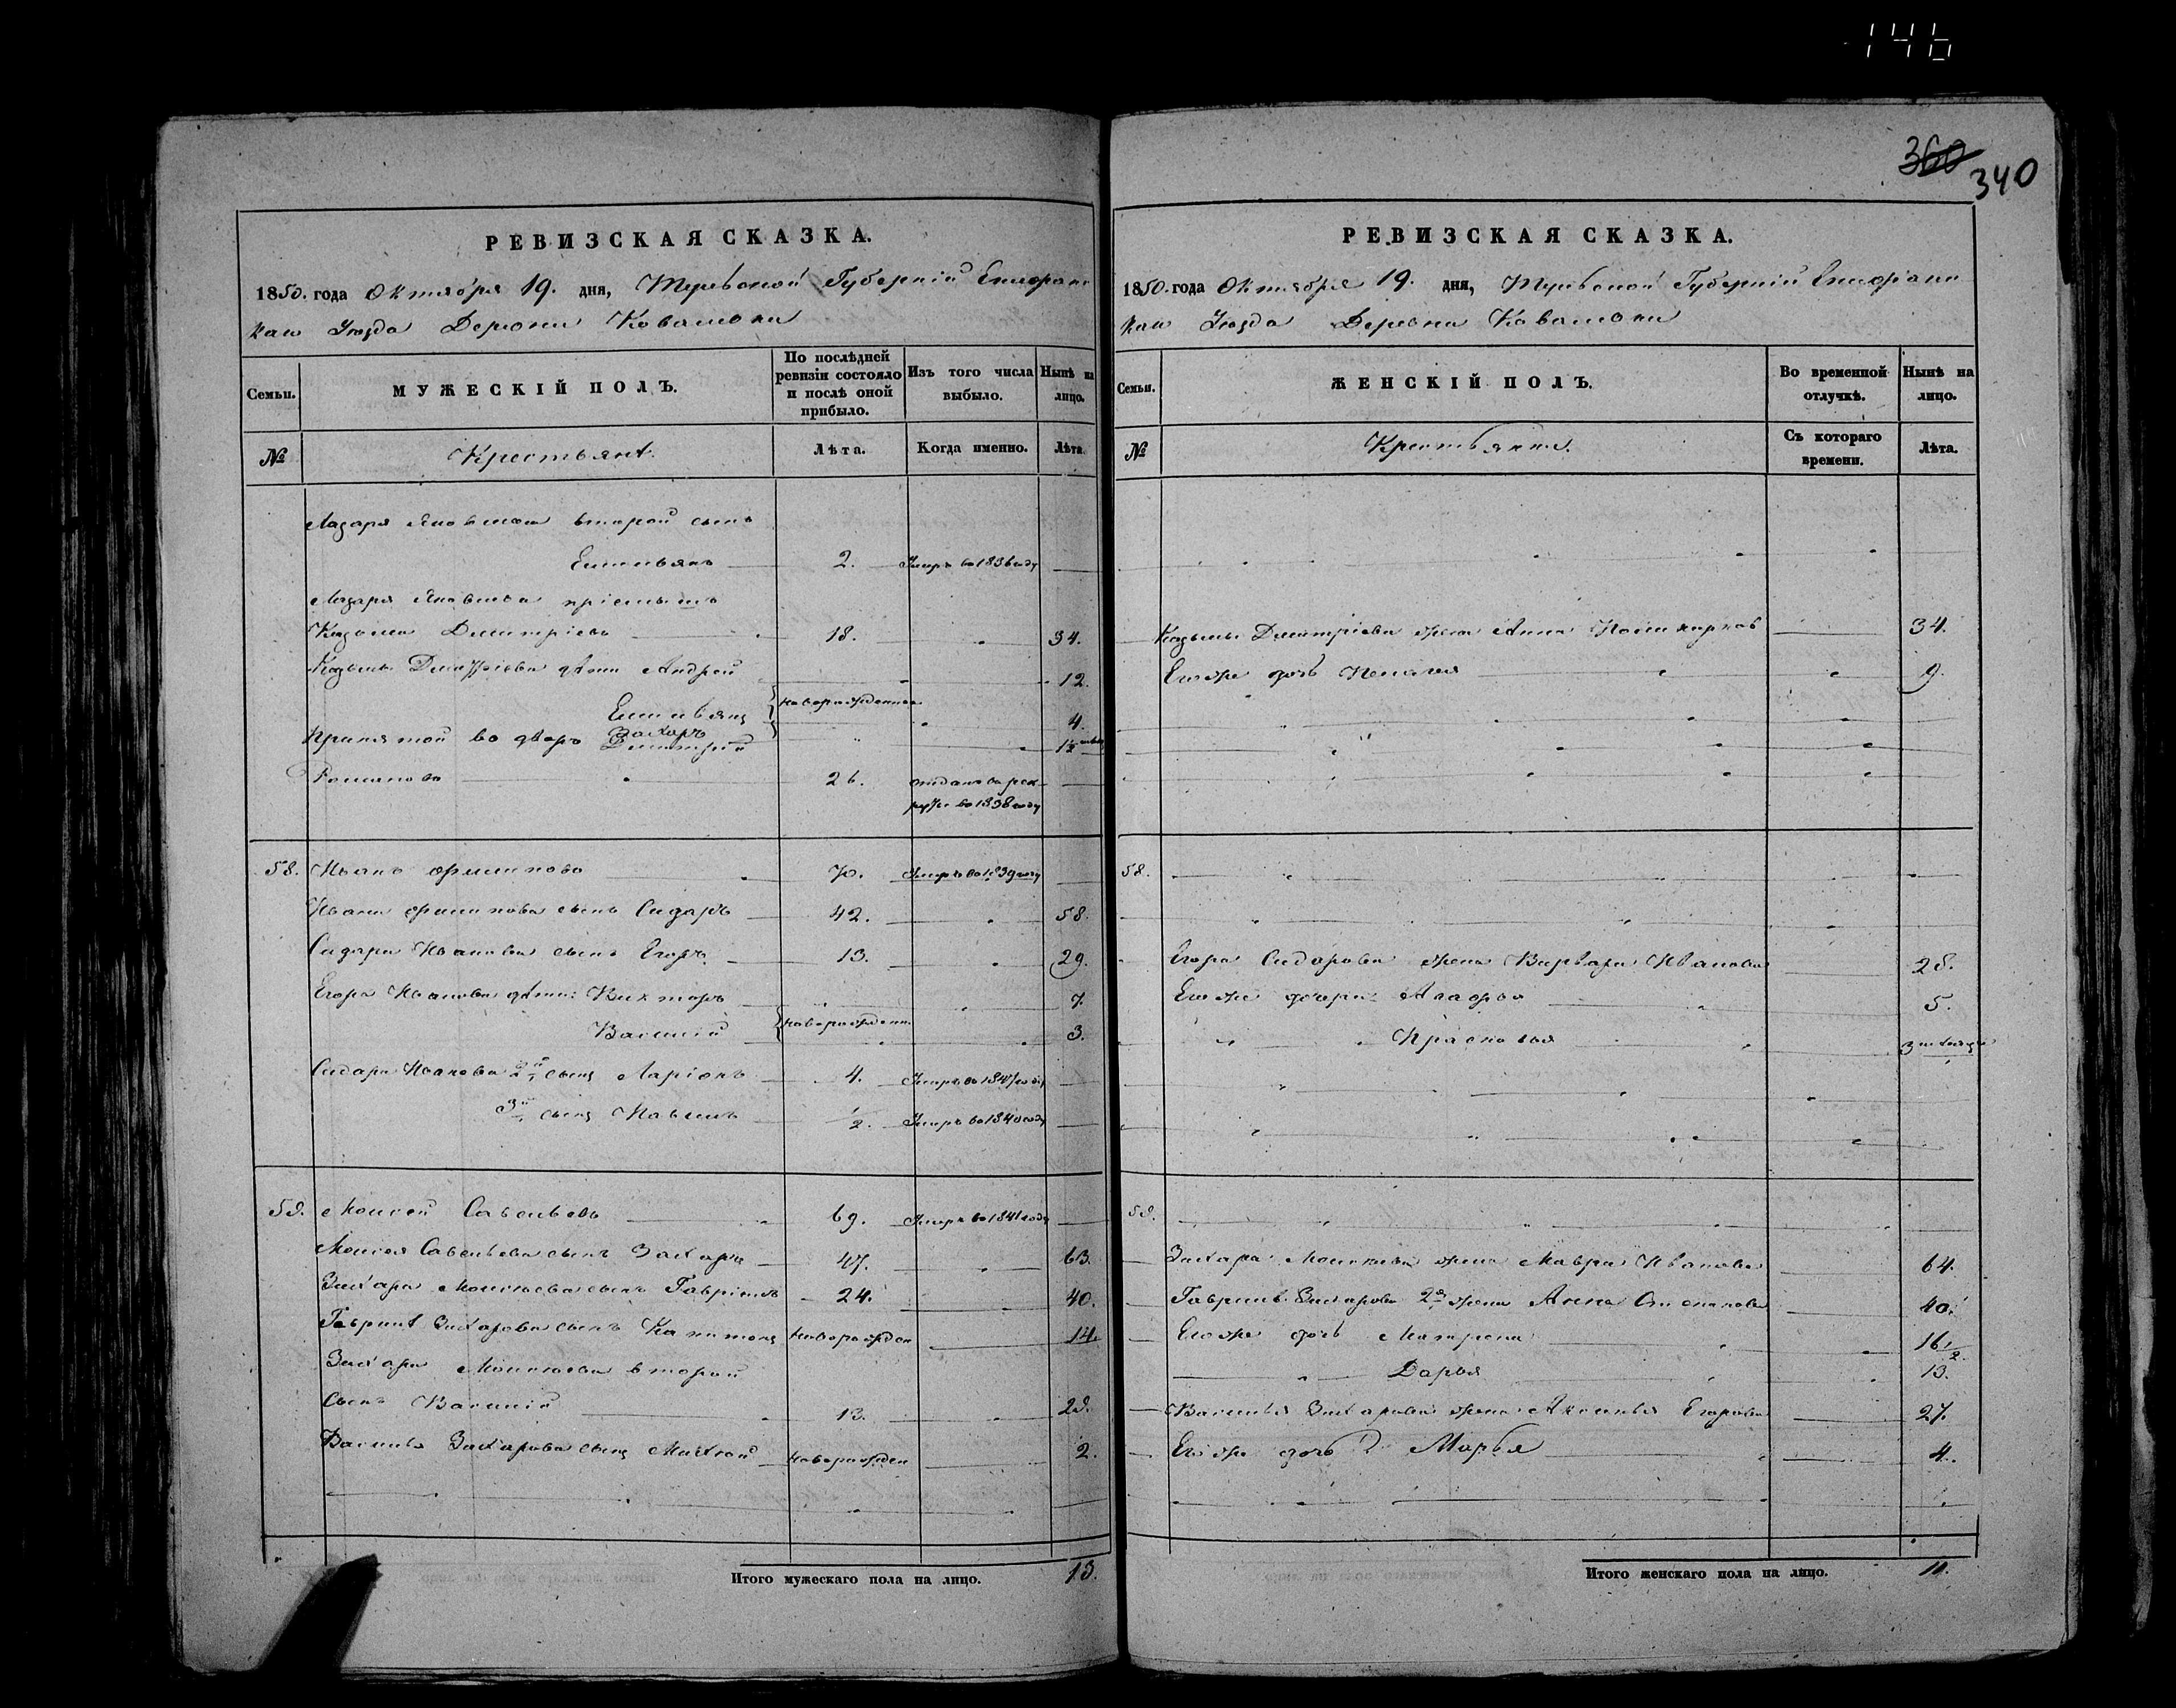 146
360
340
РЕВИЗСКАЯ СКАЗКА.
1850. года Октября 19. дня, Тульской Губерніи Епифанс
каго Уѣзда Деревни
Семьи.
МУЖЕСКІЙ ПОЛЪ.
По послѣдней ревизіи состояло и послѣ оной прибыло.
Изъ того числа выбыло.
Нынѣ на лицо.
№
Крестьянѣ.
Лѣта.
Когда именно.
Лѣта.
Лазаря второй сынъ
Емельянъ 2. Умеръ въ 1836 году
Лазаря пріемышъ
Козьма Дмитріевъ 18. 34.
Козьмы Дмитріева дѣти Андрей 12.
Емельянъ новорожденные 4.
Захаръ 1½
Принятой во дворъ Дмитрій
Романовъ 26. отданъ въ рек-
руты въ 1838 году
58. Иванъ 70. Умеръ въ 1839 году
Ивана сынъ Сидаръ 42. 58.
Сидара Иванова сынъ Егоръ 13. 29.
Егора Иванова дѣти: Викторъ 7.
Василій новорожден. 3.
Сидара Иванова 2й сынъ Ларіонъ 4. Умеръ въ 1847 году
3й сынъ ½. Умеръ въ 1840 году
59. Моисей Савельевъ 69. Умеръ въ 1841 году
Моисея Савельева сынъ Захаръ 47. 63.
Захара Моисеева сынъ Гавріилъ 24. 40.
Гавріила Захарова сынъ Капитонъ новорожден 14.
Захара Моисеева второй
сынъ Василій 13. 29.
Василья Захарова сынъ новорожден 2.
Итого мужескаго пола на лицо. 13.
РЕВИЗСКАЯ СКАЗКА.
1850. года Октября 19. дня, Тульской Губерніи Епифанс
каго Уѣзда Деревни
Семьи.
ЖЕНСКІЙ ПОЛЪ.
Во временной отлучкѣ.
Нынѣ на лицо.
№
Крестьянки.
Съ котораго времени.
Лѣта.
Козьмы Дмитріева жена Анна 34.
Егоже дочь Пелагея 9.
58.
Егора Сидорова жена Варвара Иванова 28.
Егоже дочери: 5.
Прасковья 3 мѣсяца
59.
Захара Моисеева жена Мавра Иванова 64.
Гаврила Захарова 2я жена Степанова 40.
Егоже дочь Матрена 16½.
Дарья 13.
Василья Захарова жена Аксинья Егорова 27.
Егоже дочь Марья 4.
Итого женскаго пола на лицо. 11.